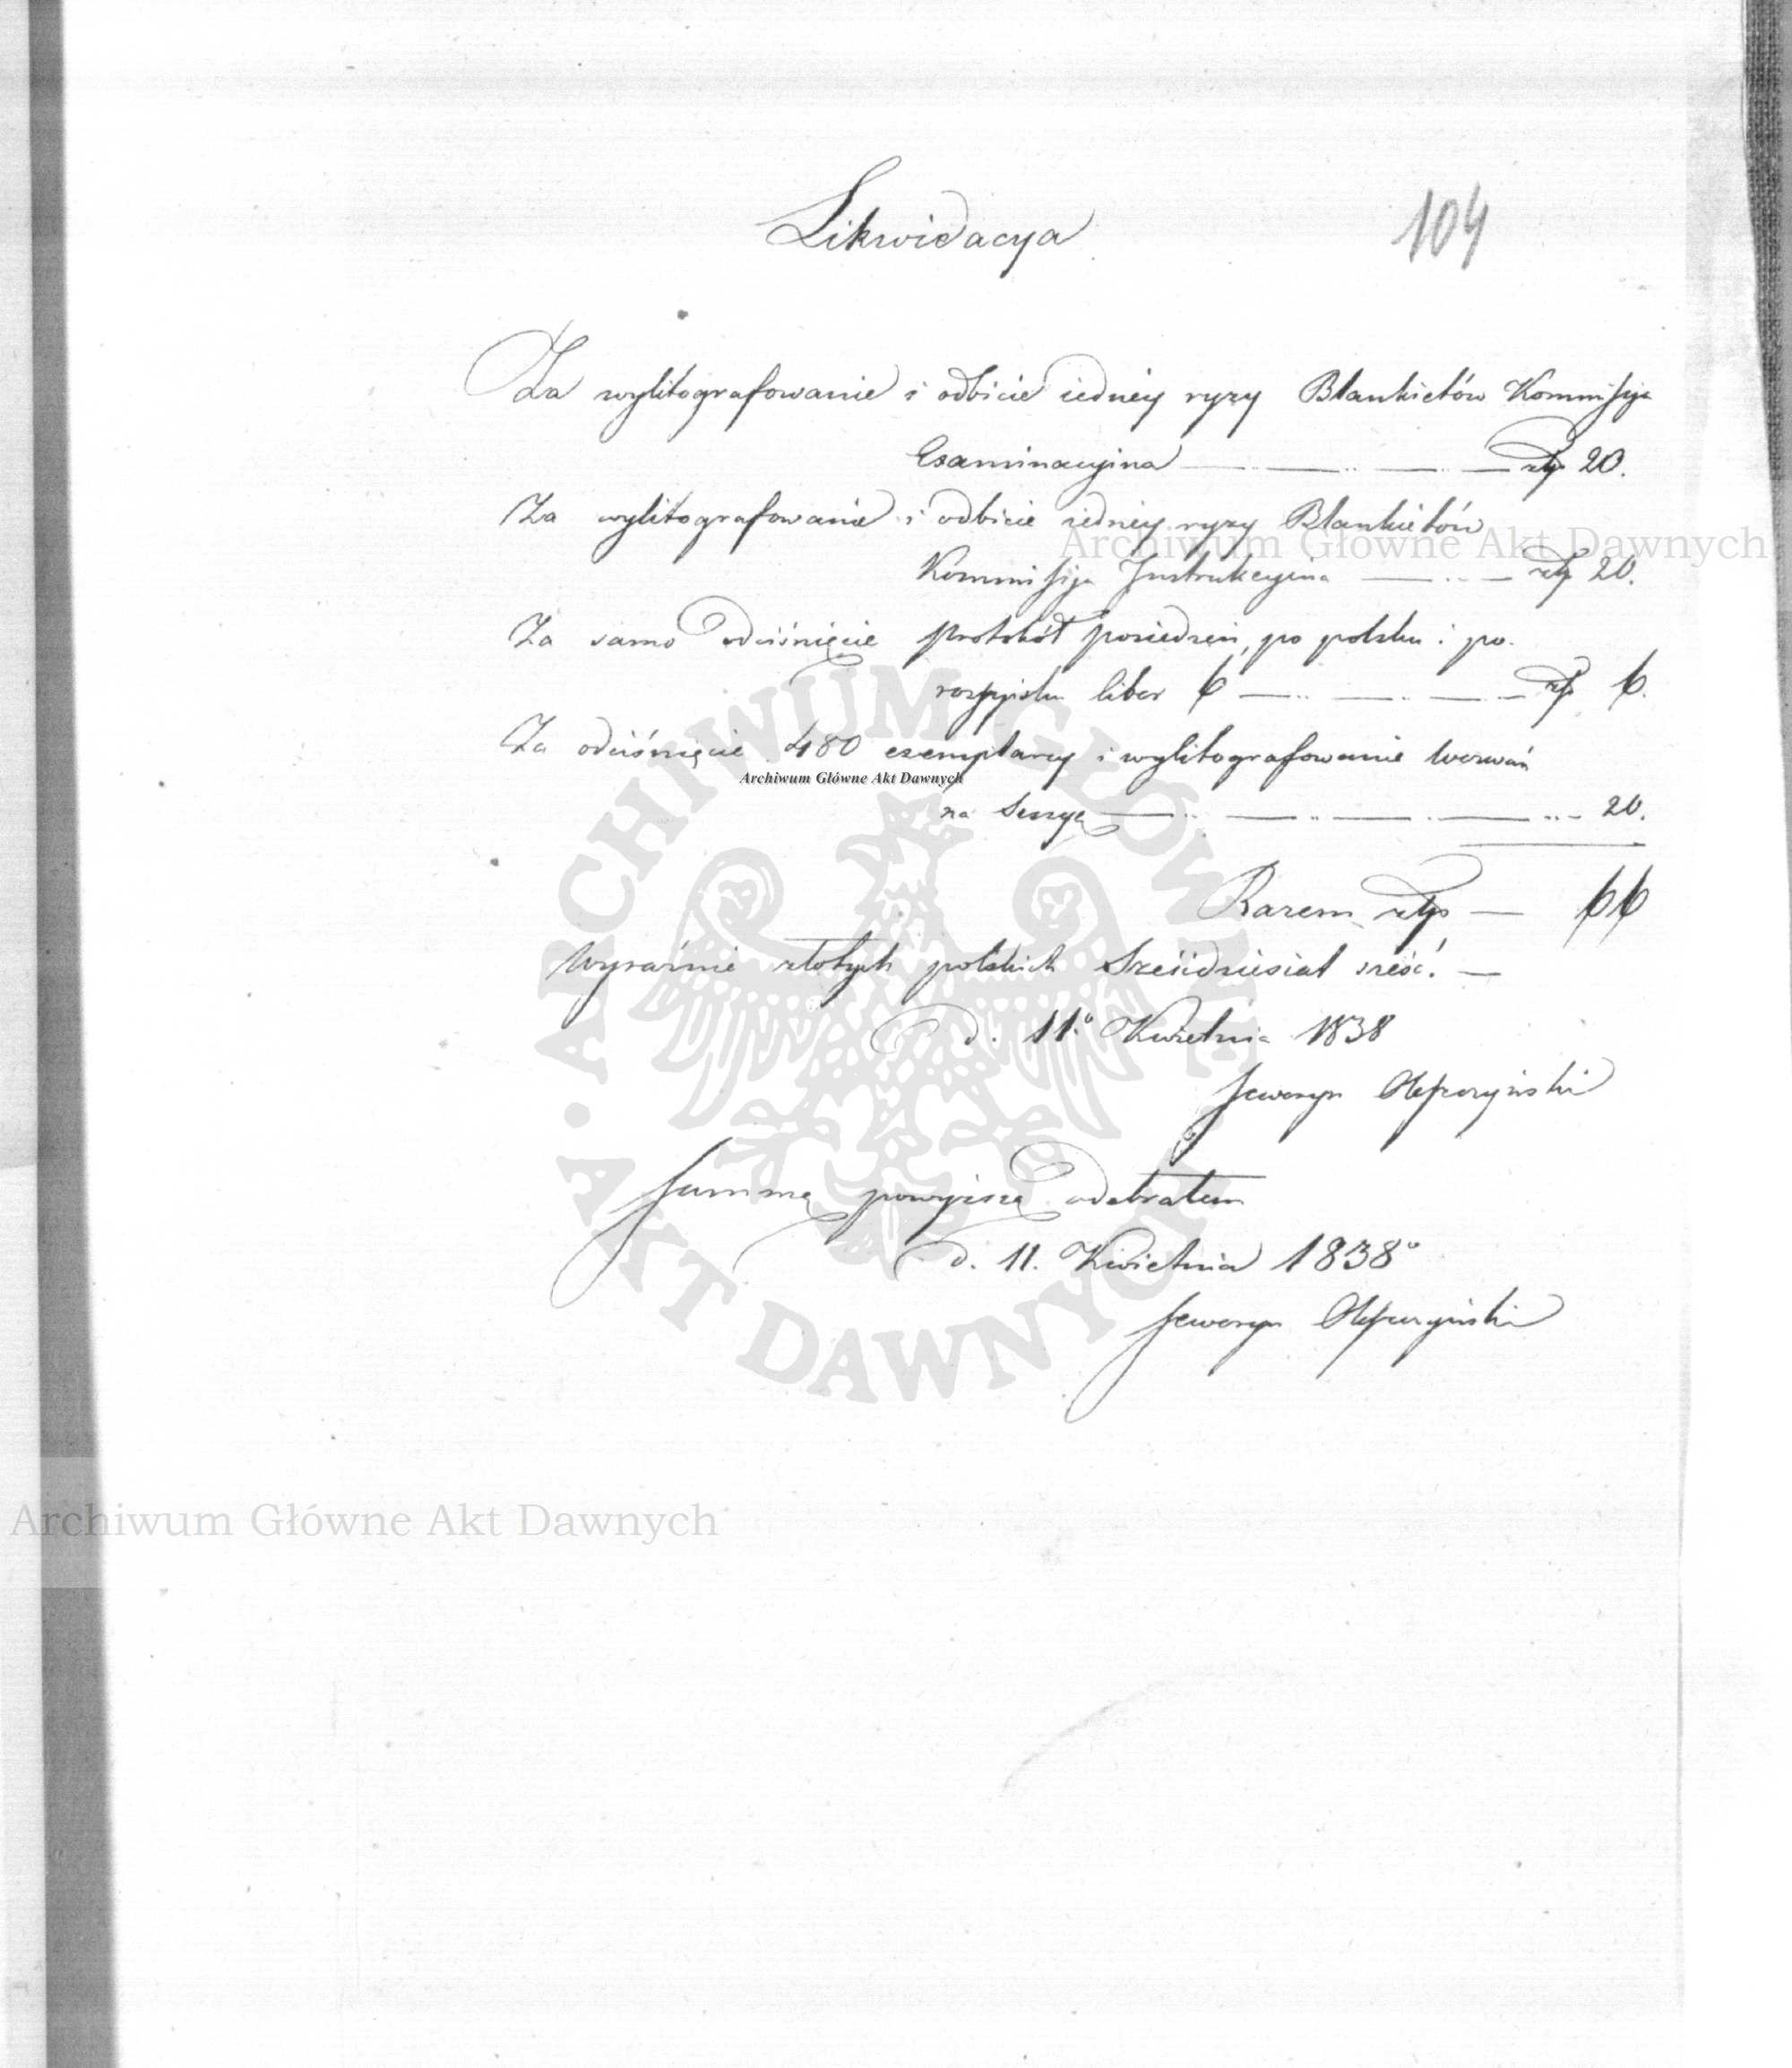 Likwidacya
104
Za wylitografowanie i odbicie iedney ryzy Blankietów Kommissya
Examinacyina złp 20.
Za wylitografowanie i odbicie iedney ryzy Blankietów
Archiwum Główne Akt Dawnych
Kommissya Instrukcyina złp 20.
Za samo odciśnięcie protokół posiedzeń, po polsku i po
rossyisku liber 6 złp 6.
Za odciśnięcie 480 exemplarzy i wylitografowanie wezwań
Archiwum Główne Akt Dawnych
na Sessyę 20.
Razem złp — 66
Wyraźnie złotych polskich Sześćdziesiąt sześć. —
d. 11.° Kwietnia 1838
Seweryn Oleszczyński
Summę powyższą odebrałem
d. 11. Kwietnia 1838°
Seweryn Oleszczyński
ARCHIWUM GŁÓWNE AKT DAWNYCH
Archiwum Główne Akt Dawnych